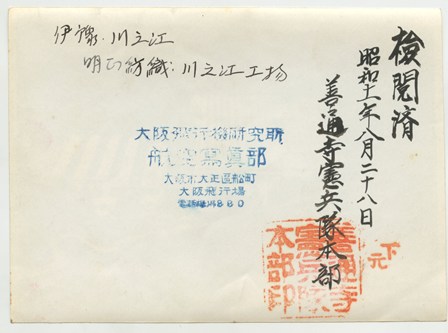 検閲済
昭和十一年八月二十八日
善通寺憲兵隊本部
伊豫.川之江
明正紡織.川之江工场
大阪飛行機研究所
航空寫眞部
大阪市大正區船町
大阪飛行場
善通寺
憲兵隊
本部印